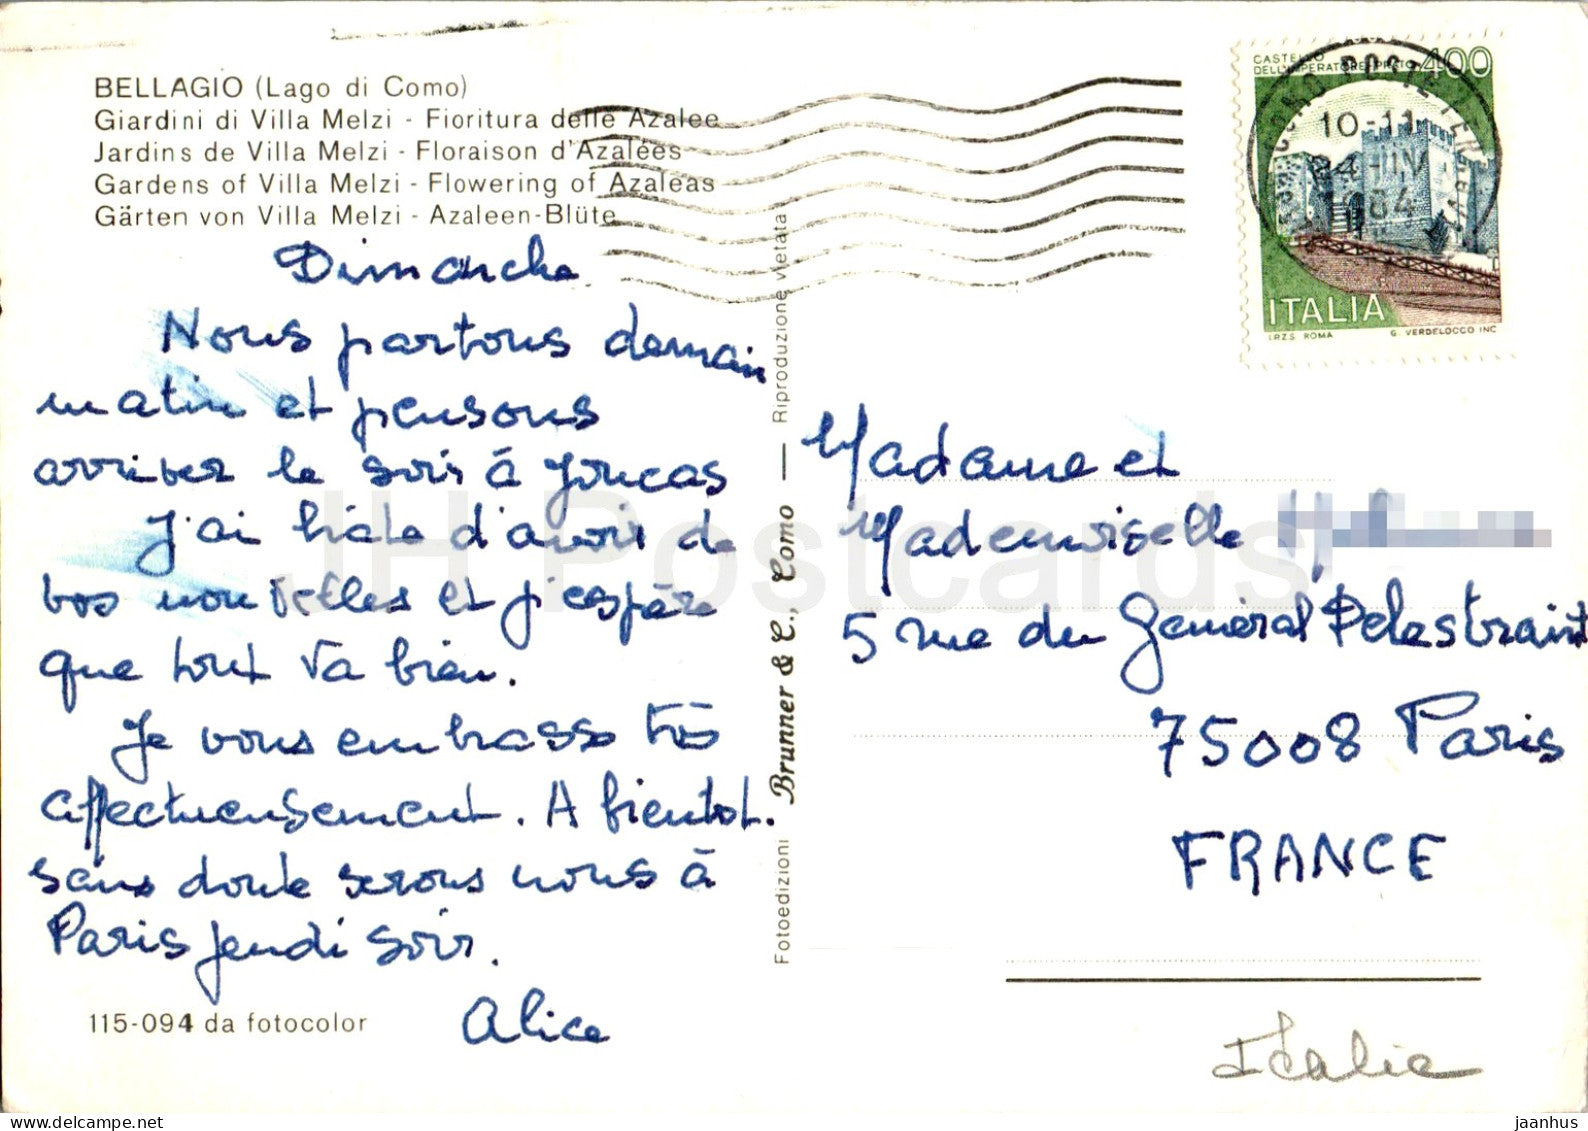 BELLAGIO (Lago di Como)
Giardini di Villa Melzi - Fioritura delle Azalee
Jardins de Villa Melzi - Floraison d'Azalées
Gardens of Villa Melzi - Flowering of Azaleas
Gärten von Villa Melzi - Azaleen-Blüte
Dimanche
Nous partons demain
matin et pensons
arriver le soir à Joucas
J'ai hâte d'avoir de
vos nouvelles et j'espère
que tout va bien.
Je vous embrasse très
affectueusement. A bientot.
sans doute serons nous à
Paris jeudi soir.
Alice
115-094 da fotocolor
Fotoedizioni Brunner & C., Como — Riproduzione vietata
CASTELLO
DELL'IMPERATORE PRATO 400
ITALIA
I.P.Z.S. ROMA G. VERDELOCCO INC
10-11
Madame et
Mademoiselle
5 rue du Général Delestraint
75008 Paris
FRANCE
Italie
JH Postcards
hipPostcard.com
jaanhus